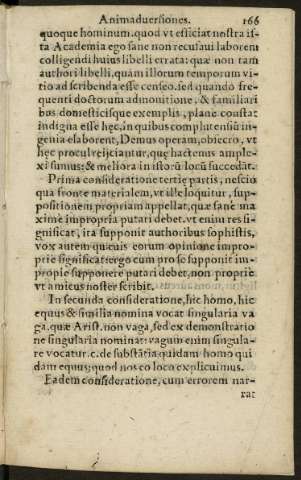 Animaduersiones. 166
quoque hominum. quod vt efficiat nostra is-
ta Academia ego sane non recusaui laborem
colligendi huius libelli errata: quæ non tam
authori libelli, quàm illorum temporum vi-
tio adscribenda esse censeo. sed quando fre-
quenti doctorum admonitione, & familiari
bus domesticisque exemplis, plane constat
indigna esse hęc, in quibus complutensiũ in-
genia elaborent, Demus operam, obiecro, vt
hęc procul reijciantur, que hactenus ample-
xi sumus: & meliora in istorũ locũ succedãt.
Prima consideratione tertię partis, nescio
qua fronte materialem, vt ille loquitur, sup-
positionem propriam appellat, quæ sanè ma
ximè impropria putari debet. vt enim res si-
gnificat, ita supponit authoribus sophistis,
vox autem quæuis eorum opinione impro-
prie significat: ergo cum pro se supponit im-
propie supponere putari debet, non proprie
vt amicus noster scribit.
In secunda consideratione, hic homo, hic
equus & similia nomina vocat singularia va
ga. quæ Arist. non vaga, sed ex demonstratio
ne singularia nominat: vagum enim singula-
re vocatur. c. de substãtia. quidam homo qui
dam equus: quod nos eo loco explicuimus.
Eadem consideratione, cum errorem nar-
rat